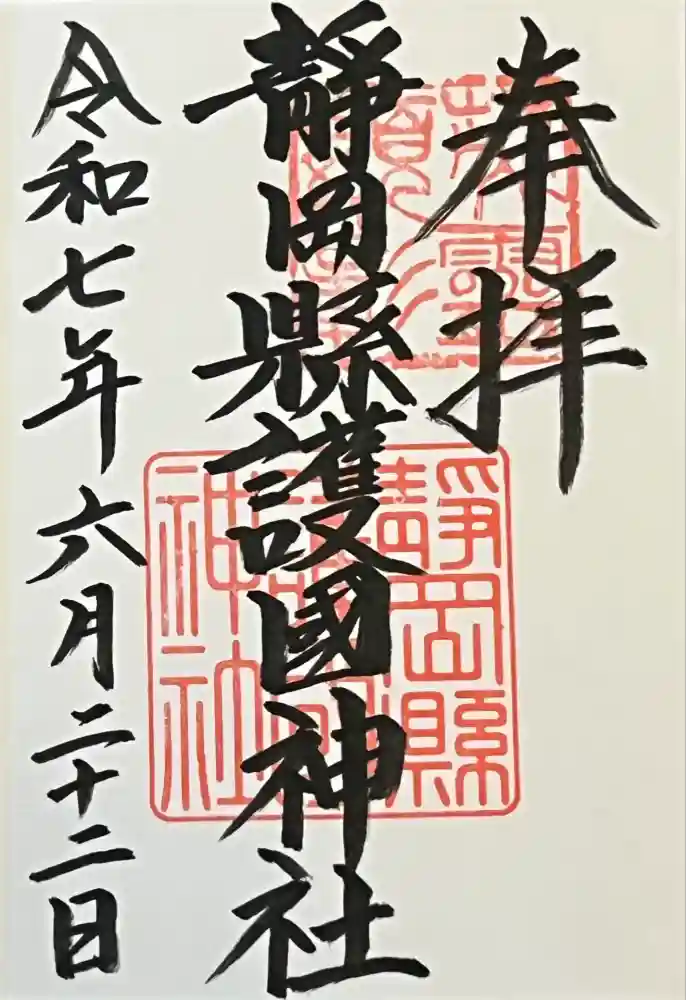 奉拝
靜岡縣護國神社
令和七年六月二十二日
靜岡縣
神社